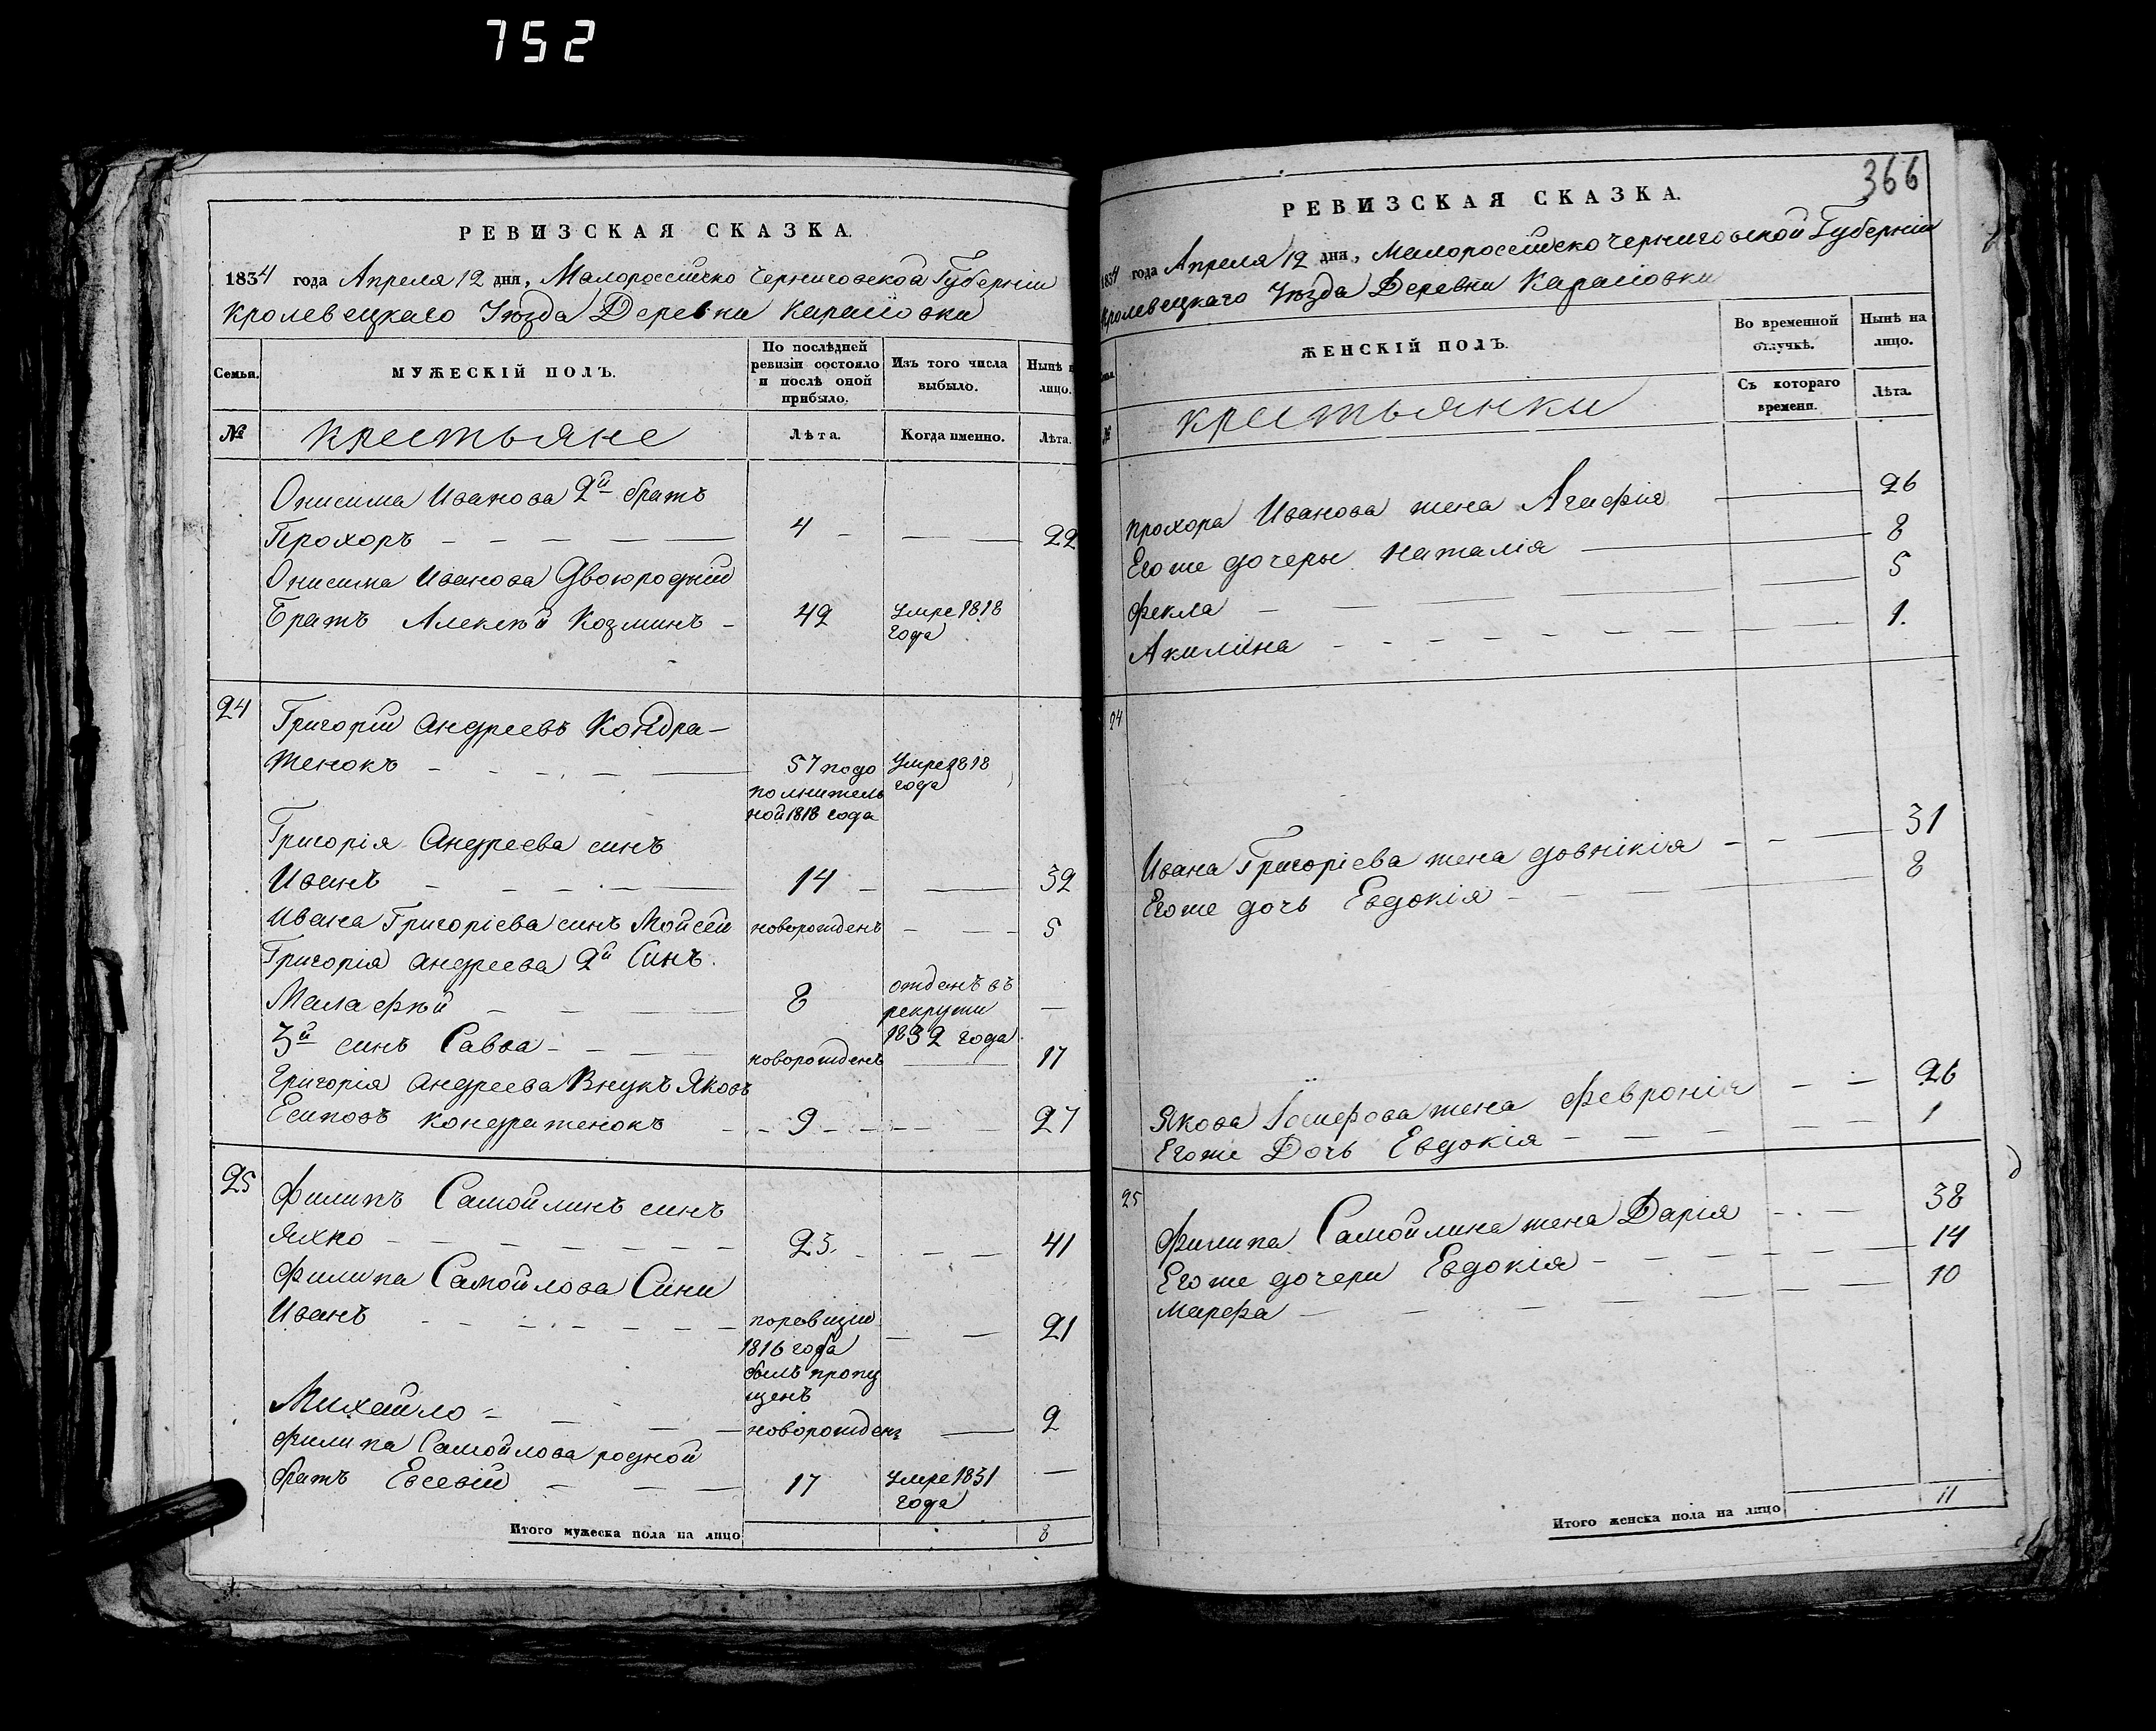 752
РЕВИЗСКАЯ СКАЗКА.
1834 года Апреля 12 дня, Малороссийско Черниговской Губерніи
Кролевецкаго Уезда Деревни
Семьи.
МУЖЕСКІЙ ПОЛЪ.
По послѣдней ревизіи состояло и послѣ оной прибыло.
Изъ того числа выбыло.
Нынѣ
лицо.
№
Крестьяне
Лѣта.
Когда именно.
Лѣта.
Онисима Иванова 2й братъ
Прохоръ 4 22
Онисима Иванова Двоюродній
Братъ Алексѣй Козминъ 42 Умре 1818
года
24 Григорій Андреевъ Кондра-
тенокъ 57 подо Умре 1818
полнитель года
ной 1818 года
Григорія Андреева синъ
Иванъ 14 32
Ивана Григоріева синъ Мойсей новорожденъ 5
Григорія Андреева 2й Синъ
Малафѣй 8 отданъ въ
рекрути
1832 года
3й синъ Савва новорожденъ 17
Григорія Андреева Внукъ Яковъ
Есиповъ Кондратенокъ 9 27
25 Филипъ Самойлинъ синъ
Яхно 23 41
Филипа Самойлова Сини
Иванъ поревизіи 21
1816 года
былъ пропу
щенъ
Михайло новорожденъ 2
Филипа Самойлова родной
братъ Евсевій 17 Умре 1831
года
Итого мужеска пола на лицо 8
366
РЕВИЗСКАЯ СКАЗКА.
1834 года Апреля 12 дня, Малороссийско Черниговской Губерніи
Кролевецкаго Уезда Деревни
ЖЕНСКІЙ ПОЛЪ.
Во временной отлучкѣ.
Нынѣ на лицо.
№
Крестьянки
Съ котораго времени.
Лѣта.
Прохора Иванова жена Агафія 26
Егоже дочеры Наталія 8
Фекла 5
Акилина 1.
24
Ивана Григоріева жена Довнікія 31
Егоже дочь Евдокія 8
Якова Іосифова жена Февронія 26
Егоже Дочь Евдокія 1
25
Филипа Самойлина жена Дарія 38
Егоже дочери Евдокія 14
Марфа 10
Итого женска пола на лицо 11